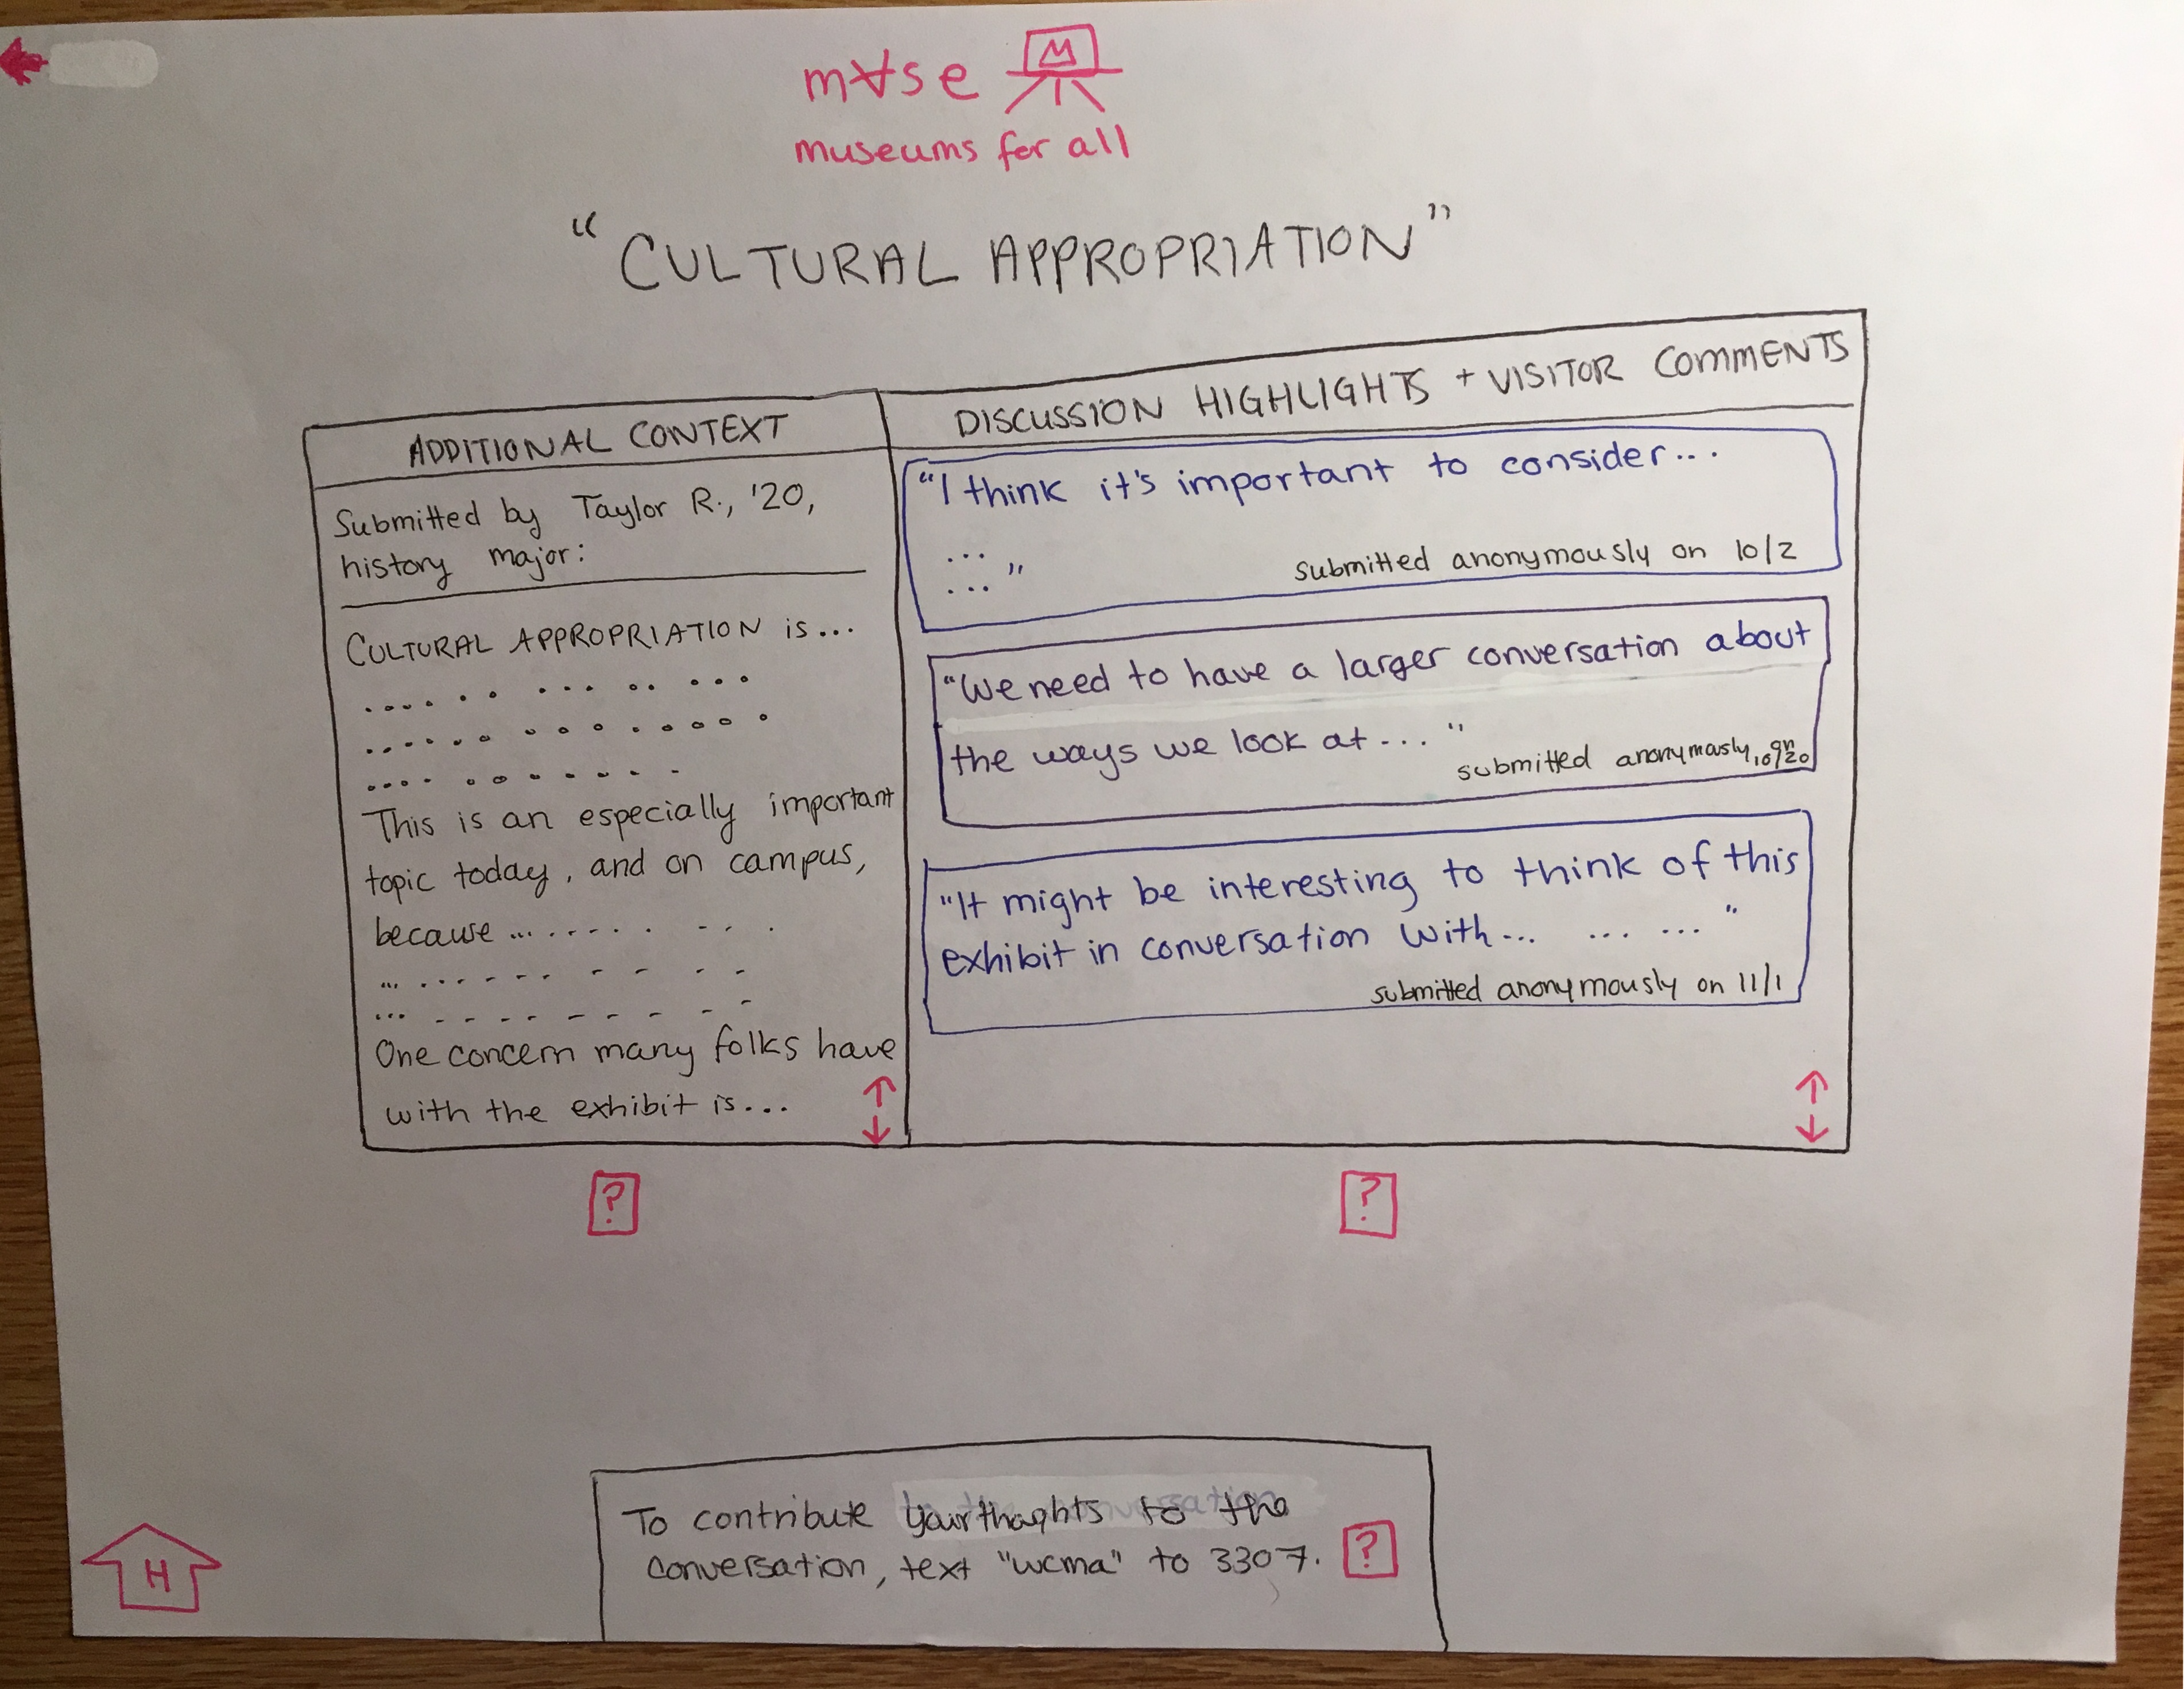 m∀se
M
museums for all
"CULTURAL APPROPRIATION"
ADDITIONAL CONTEXT
Submitted by Taylor R., '20,
history major:
CULTURAL APPROPRIATION is...
This is an especially important
topic today, and on campus,
because ...
One concern many folks have
with the exhibit is...
?
DISCUSSION HIGHLIGHTS + VISITOR COMMENTS
"I think it's important to consider...
...
... "
submitted anonymously on 10/2
"We need to have a larger conversation about
the ways we look at ... "
submitted anonymously on
10/20
"It might be interesting to think of this
exhibit in conversation with... ... ... "
submitted anonymously on 11/1
?
To contribute your thoughts to the
conversation, text "wcma" to 3307.
?
H